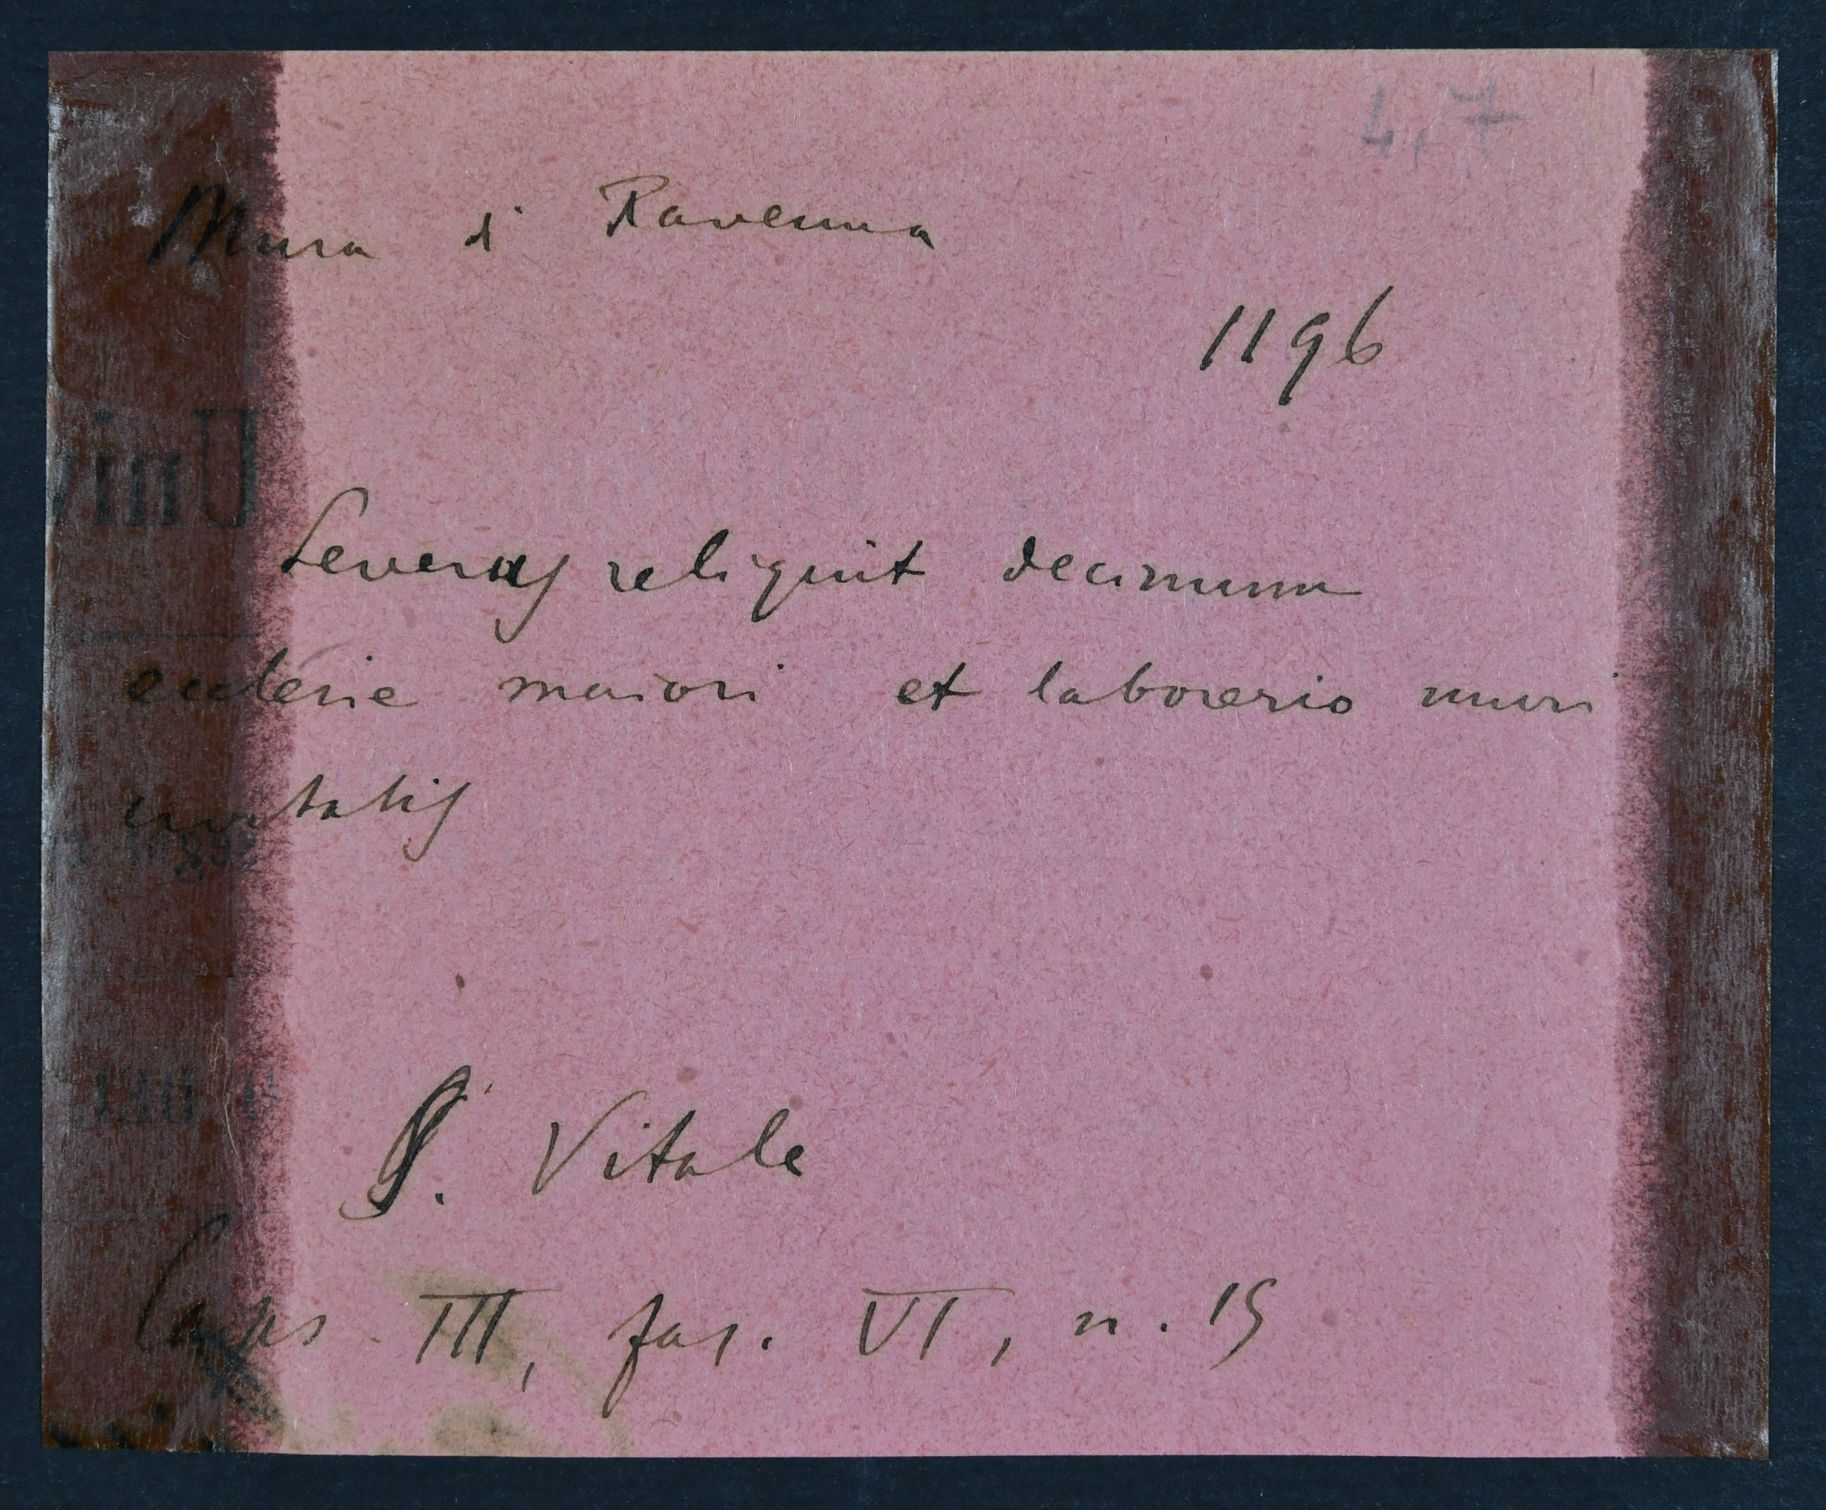 4,7
Mura di Ravenna
1196
Severus reliquit decimum
ecclesie maiori et laborerio muri
civitatis
S. Vitale
Caps. III, fas. VI, n. 15